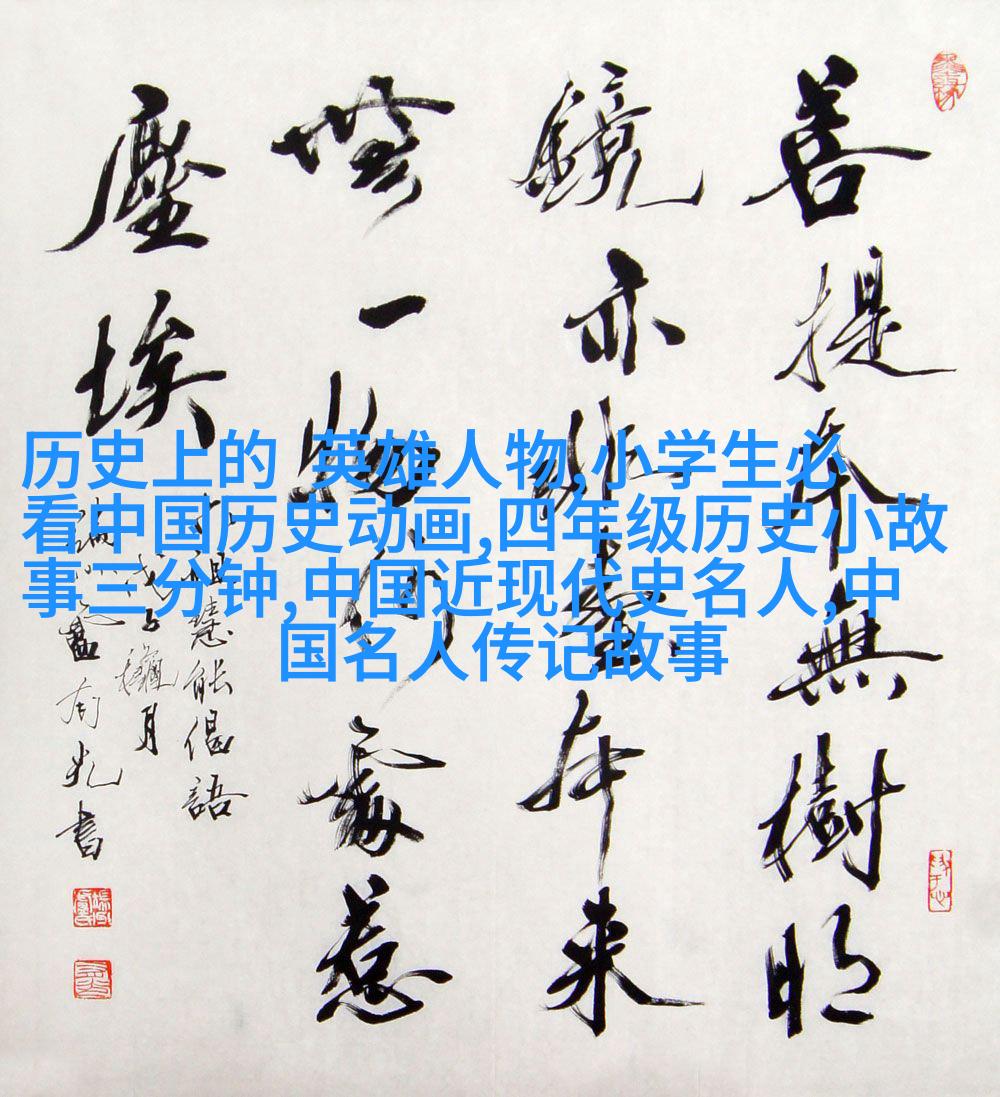 菩提本無樹明
鏡亦非臺本来
無一物何處惹
塵埃
六祖慧能偈語
历史上的 英雄人物,小学生必
看中国历史动画,四年级历史小故
事三分钟,中国近现代史名人,中
国名人传记故事